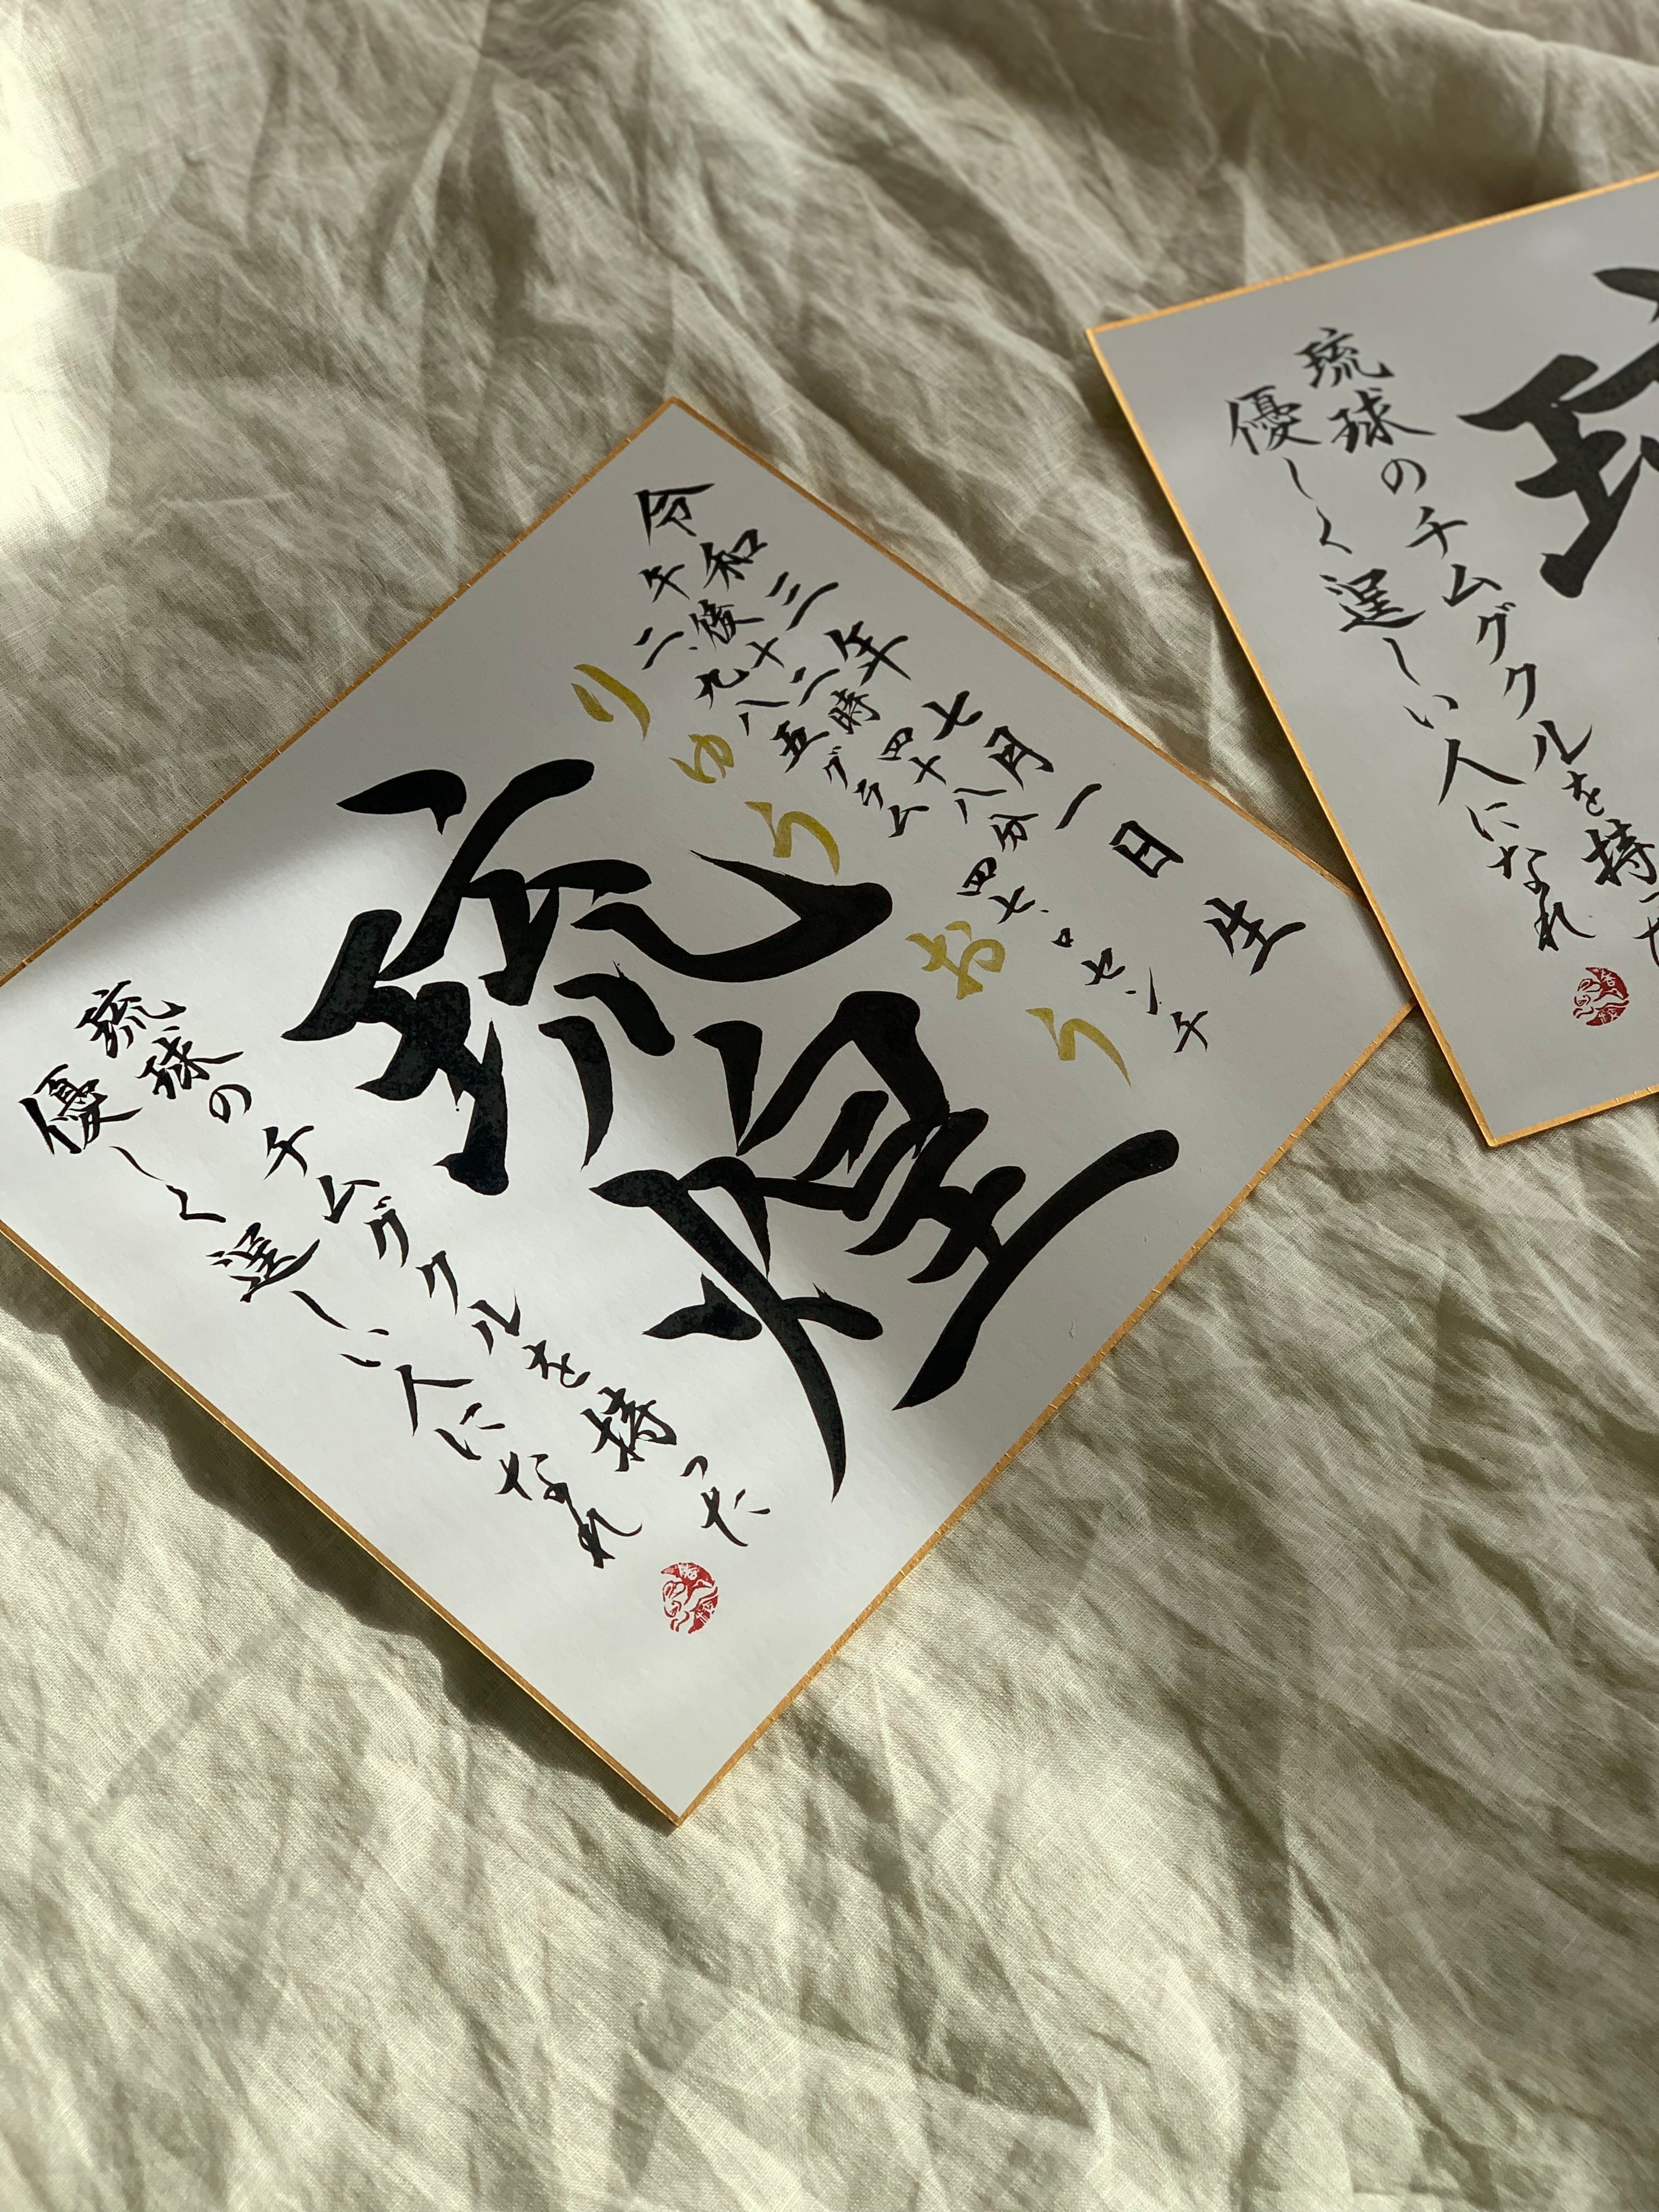 令和三年七月一日生
午後十二時四十八分
二、九八五グラム 四七.〇センチ
りゅう おう
琉煌
琉球のチムグクルを持った
優しく逞しい人になれ
琉球のチムグクルを持った
優しく逞しい人になれ